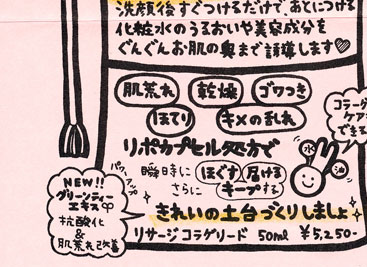 洗顔後すぐつけるだけで、あとにつける
化粧水のうるおいや美容成分を
ぐんぐんお肌の奥まで誘導します♡
肌荒れ
乾燥
ゴワつき
ほてり
キメの乱れ
リポカプセル処方で
コラーゲ
ケア
できる
水
油
パワーアップ
瞬時に
さらに
ほぐす
届ける
キープする
きれいの土台づくりしましょ
リサージ コラゲリード 50ml ¥5,250-
NEW!!
グリーンティー
エキス
抗酸化
&
肌荒れ改善